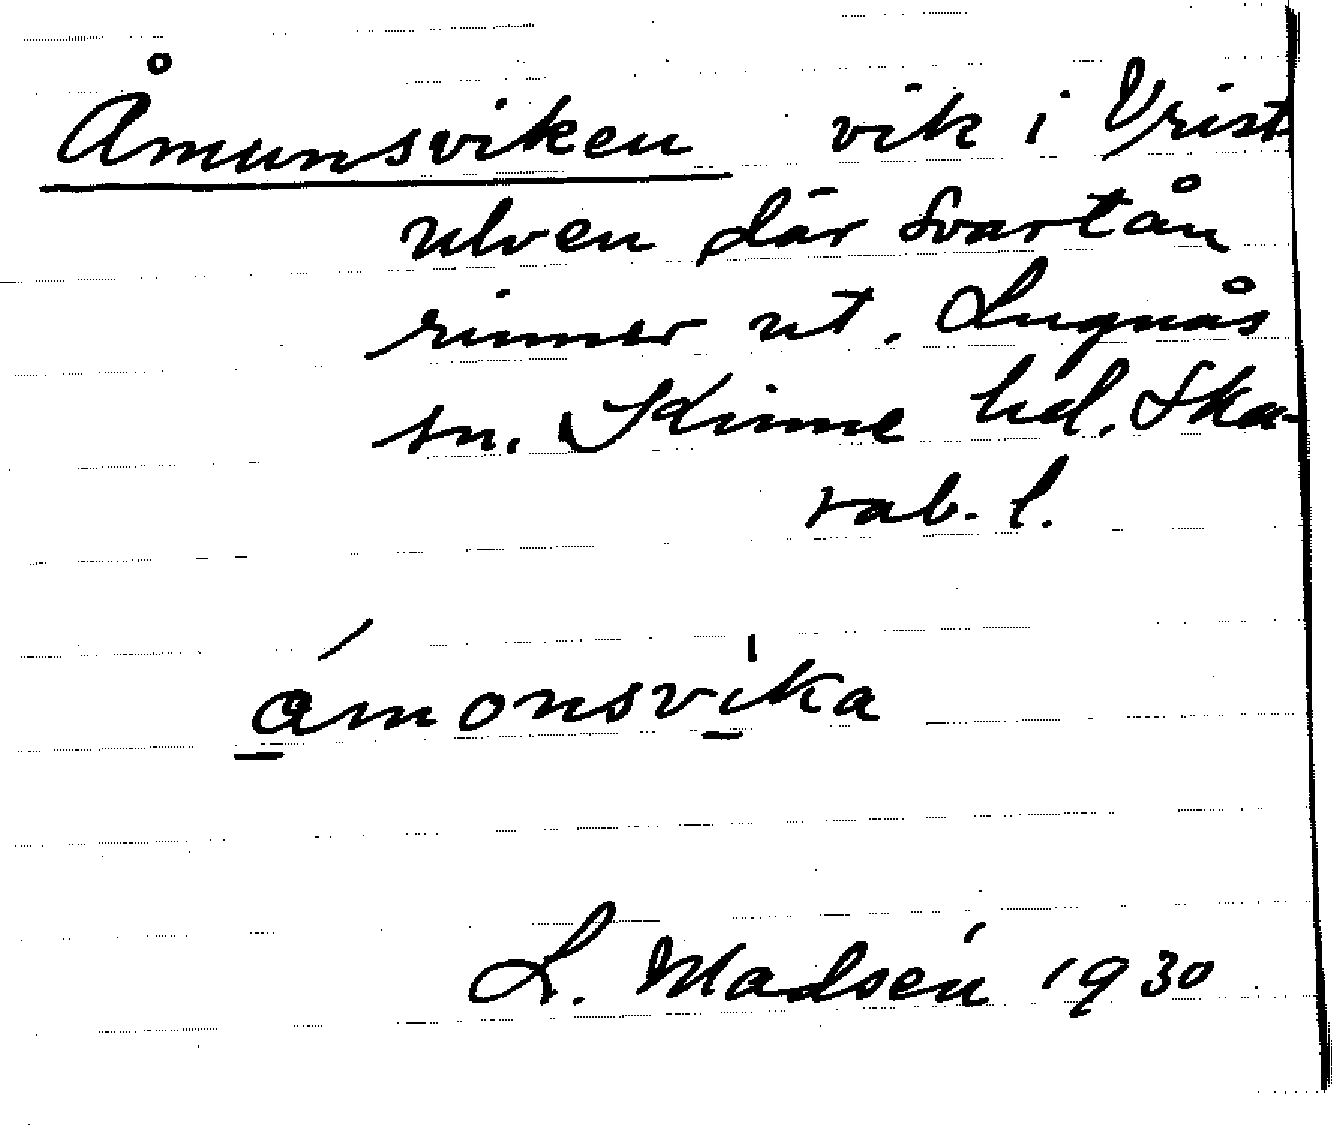 Åmunsviken vik i Vrist
ulven där Svartån
rinner ut. Lugnås
sn. Kinne hd. Ska-
rab. l.
ámonsvika
L. Madsén 1930